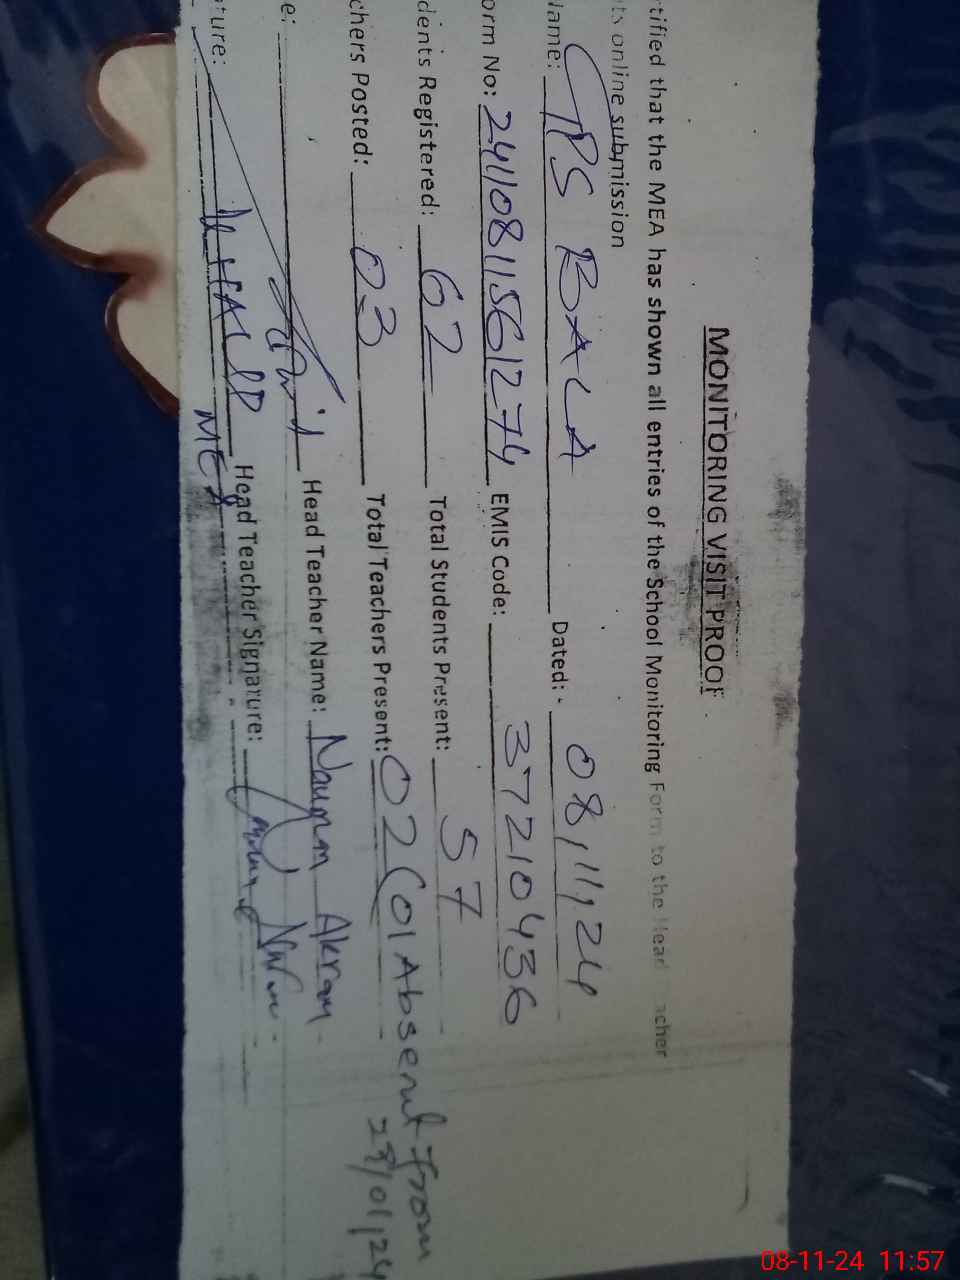 MONITORING VISIT PROOF
rtified that the MEA has shown all entries of the School Monitoring Form to the Head acher
its online submission
Name: GPS BALA Dated: 08,11,24
orm No: 24110811561274 EMIS Code: 37210436
dents Registered: 62 Total Students Present: 57
chers Posted: 03 Total Teachers Present: 02 (01 Absent from
28/01,24
e: Head Teacher Name: Nauman Akram
ture: Head Teacher Signarure:
MEA
08-11-24 11:57